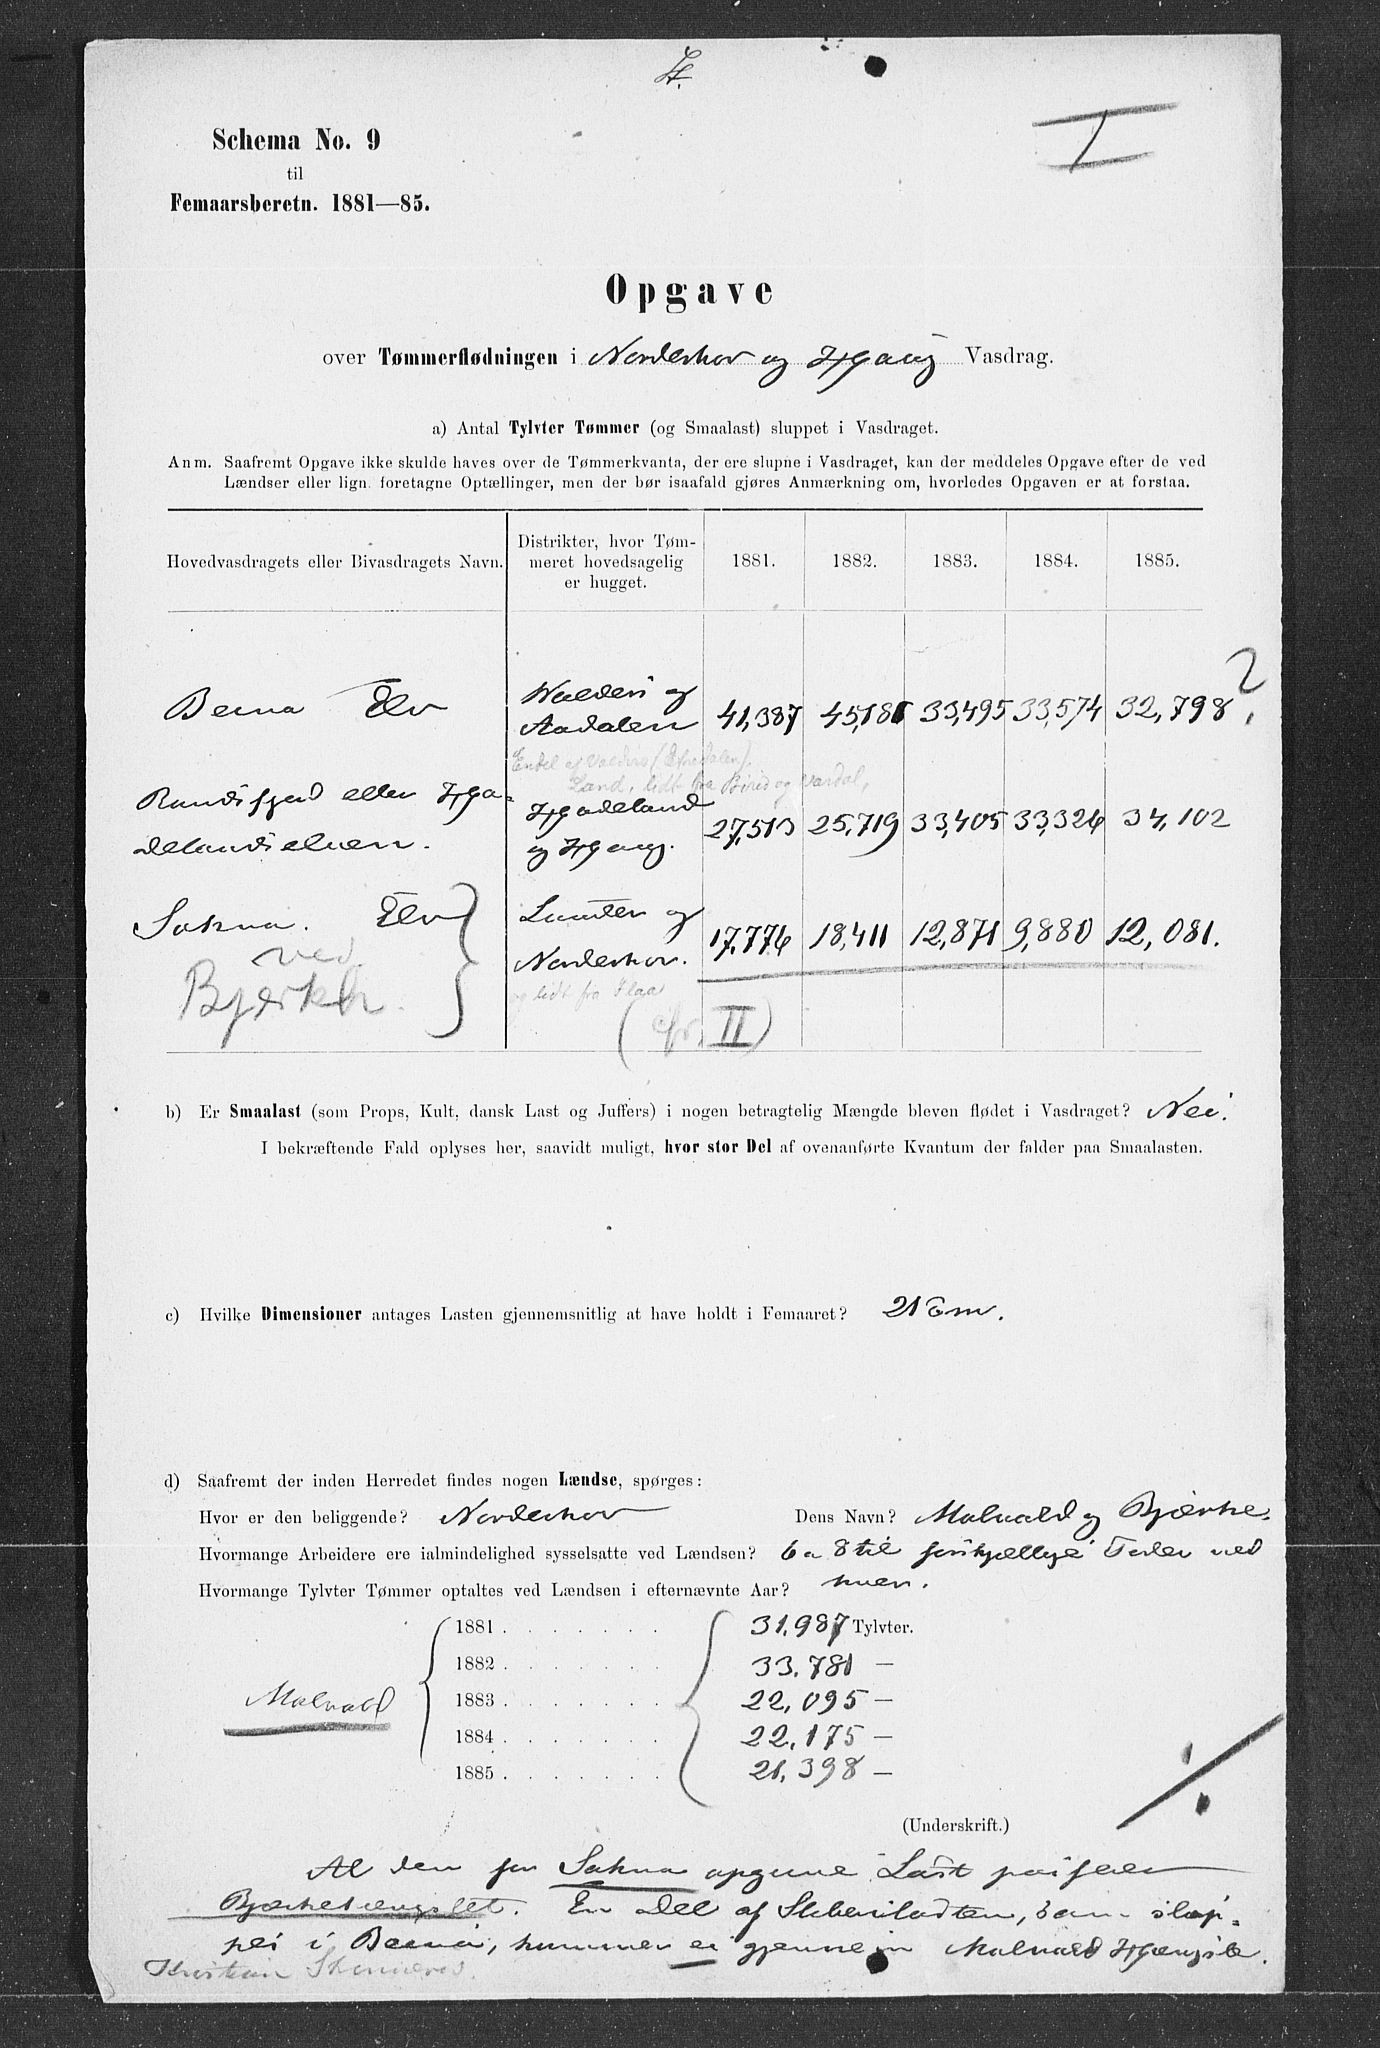 I
Schema No. 9
til
Femaarsberetn. 1881—85.
Opgave
over Tømmerflødningen i Norderhov og Hgaug Vasdrag.
a) Antal Tylvter Tømmer (og Smaalast) sluppet i Vasdraget.
Anm. Saafremt Opgave ikke skulde haves over de Tømmerkvanta, der ere slupne i Vasdraget, kan der meddeles Opgave efter de ved
Lændser eller lign. foretagne Optællinger, men der bør isaafald gjøres Anmærkning om, hvorledes Opgaven er at forstaa.
Hovedvasdragets eller Bivasdragets Navn. Distrikter, hvor Tøm-
meret hovedsagelig
er hugget. 1881. 1882. 1883. 1884. 1885.
Begna Elv Valders og
Aadalen 41,387 45,181 33,495 33,574 32,798 ?
Endel af Valders (Etnedalen),
Land, lidt fra Biri og Vardal,
Randsfjord eller Hga-
delandselven. Hgadeland
og Hgaug. 27,513 25,719 33,405 33,326 34,102
Sokna Elv
ved
Bjerke. Lunder og
Norderhov. 17,776 18,411 12,871 9,880 12,081.
og lidt fra Flaa
(cfr. II)
b) Er Smaalast (som Props, Kult, dansk Last og Juffers) i nogen betragtelig Mængde bleven flødet i Vasdraget? Nei.
I bekræftende Fald oplyses her, saavidt muligt, hvor stor Del af ovenanførte Kvantum der falder paa Smaalasten.
c) Hvilke Dimensioner antages Lasten gjennemsnitlig at have holdt i Femaaret? 21 Cm.
d) Saafremt der inden Herredet findes nogen Lændse, spørges:
Hvor er den beliggende? Norderhov Dens Navn? Molvald og Bjærke.
Hvormange Arbeidere ere ialmindelighed sysselsatte ved Lændsen? 6 a 8 til forskjellige Tider ved
hver.
Hvormange Tylvter Tømmer optaltes ved Lændsen i efternævnte Aar?
Molvald
1881 . . . . . . 31,987 Tylvter.
1882 . . . . . . 33,781 —
1883 . . . . . . 22,095 —
1884 . . . . . . 22,175 —
1885 . . . . . . 21,398 —
(Underskrift.)
Al den for Sokna opgivne Last passerer
Bjærkehængslet. En Del af Sliberiladten, som slip-
pes i Begna, kommer ei gjennem Molvald Hgængsle.
Kristian